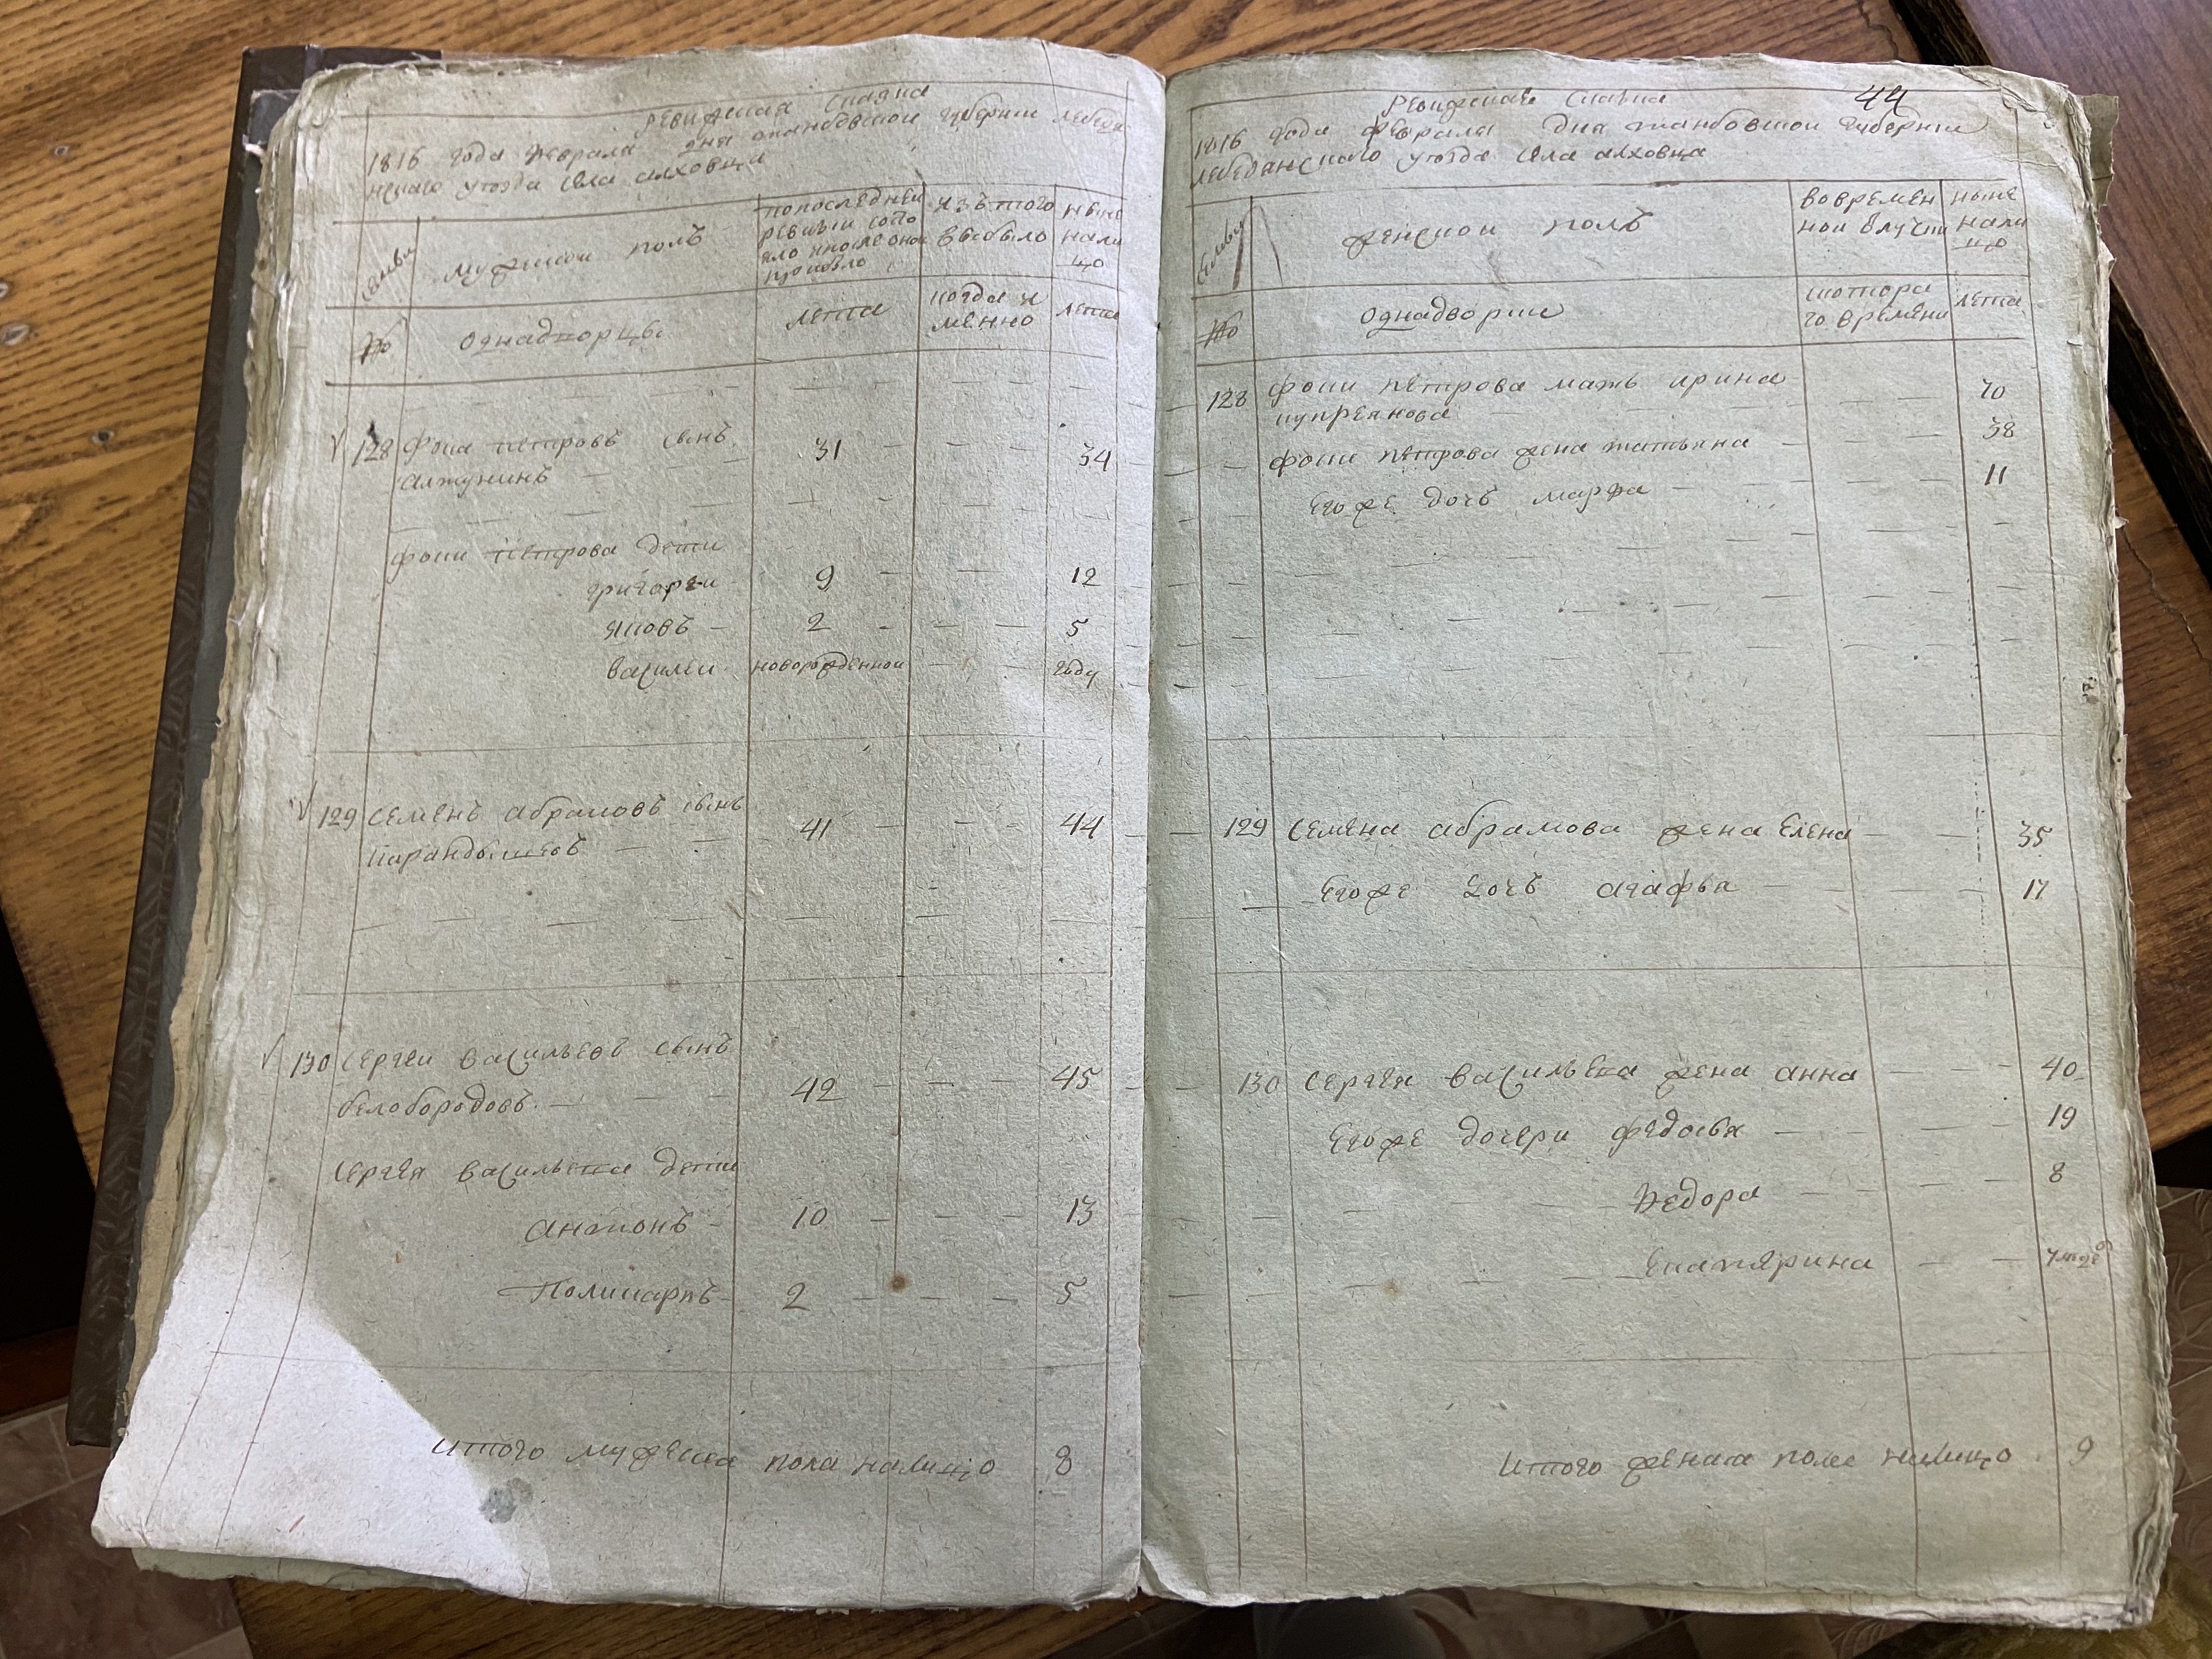 Ревижская сказка
1816 года февраля дня танбовской губернии лебедя
нскаго уезда села алховца
семьи
мужской полъ
попоследней
ревизии состо
яло и после оной
изъ того
выбыло
ныне
нали
цо
№
однадворцы
лета
когда и
менно
лета
128 Фока петровъ сынъ
алтунинъ
31
34
фоки петрова дети
григорей 9 12
яковъ 2 5
василей новорожденной году
129 семенъ абрамовъ сынъ
41
44
130 сергей васильевъ сынъ
белобородовъ
42
45
сергея васильева дети
антонъ 10 13
Поликарпъ 2 5
итого мужеска пола налицо 8
44
Ревижская сказка
1816 года февраля дня танбовской губернии
лебедянскаго уезда села алховца
семьи
женской полъ
вовремен
ной влучки
ныне
нали
цо
№
однадворки
скотора
го времени
лета
128 фоки петрова мать ирина 70
купреянова
фоки петрова жена татьяна 38
Егоже дочь марфа 11
129 Семена абрамова жена Елена 35
Егоже дочь агафья 17
130 Сергея васильева жена анна 40
Егоже дочери федосья 19
Федора 8
Екатярина
итого женска пола налицо 9